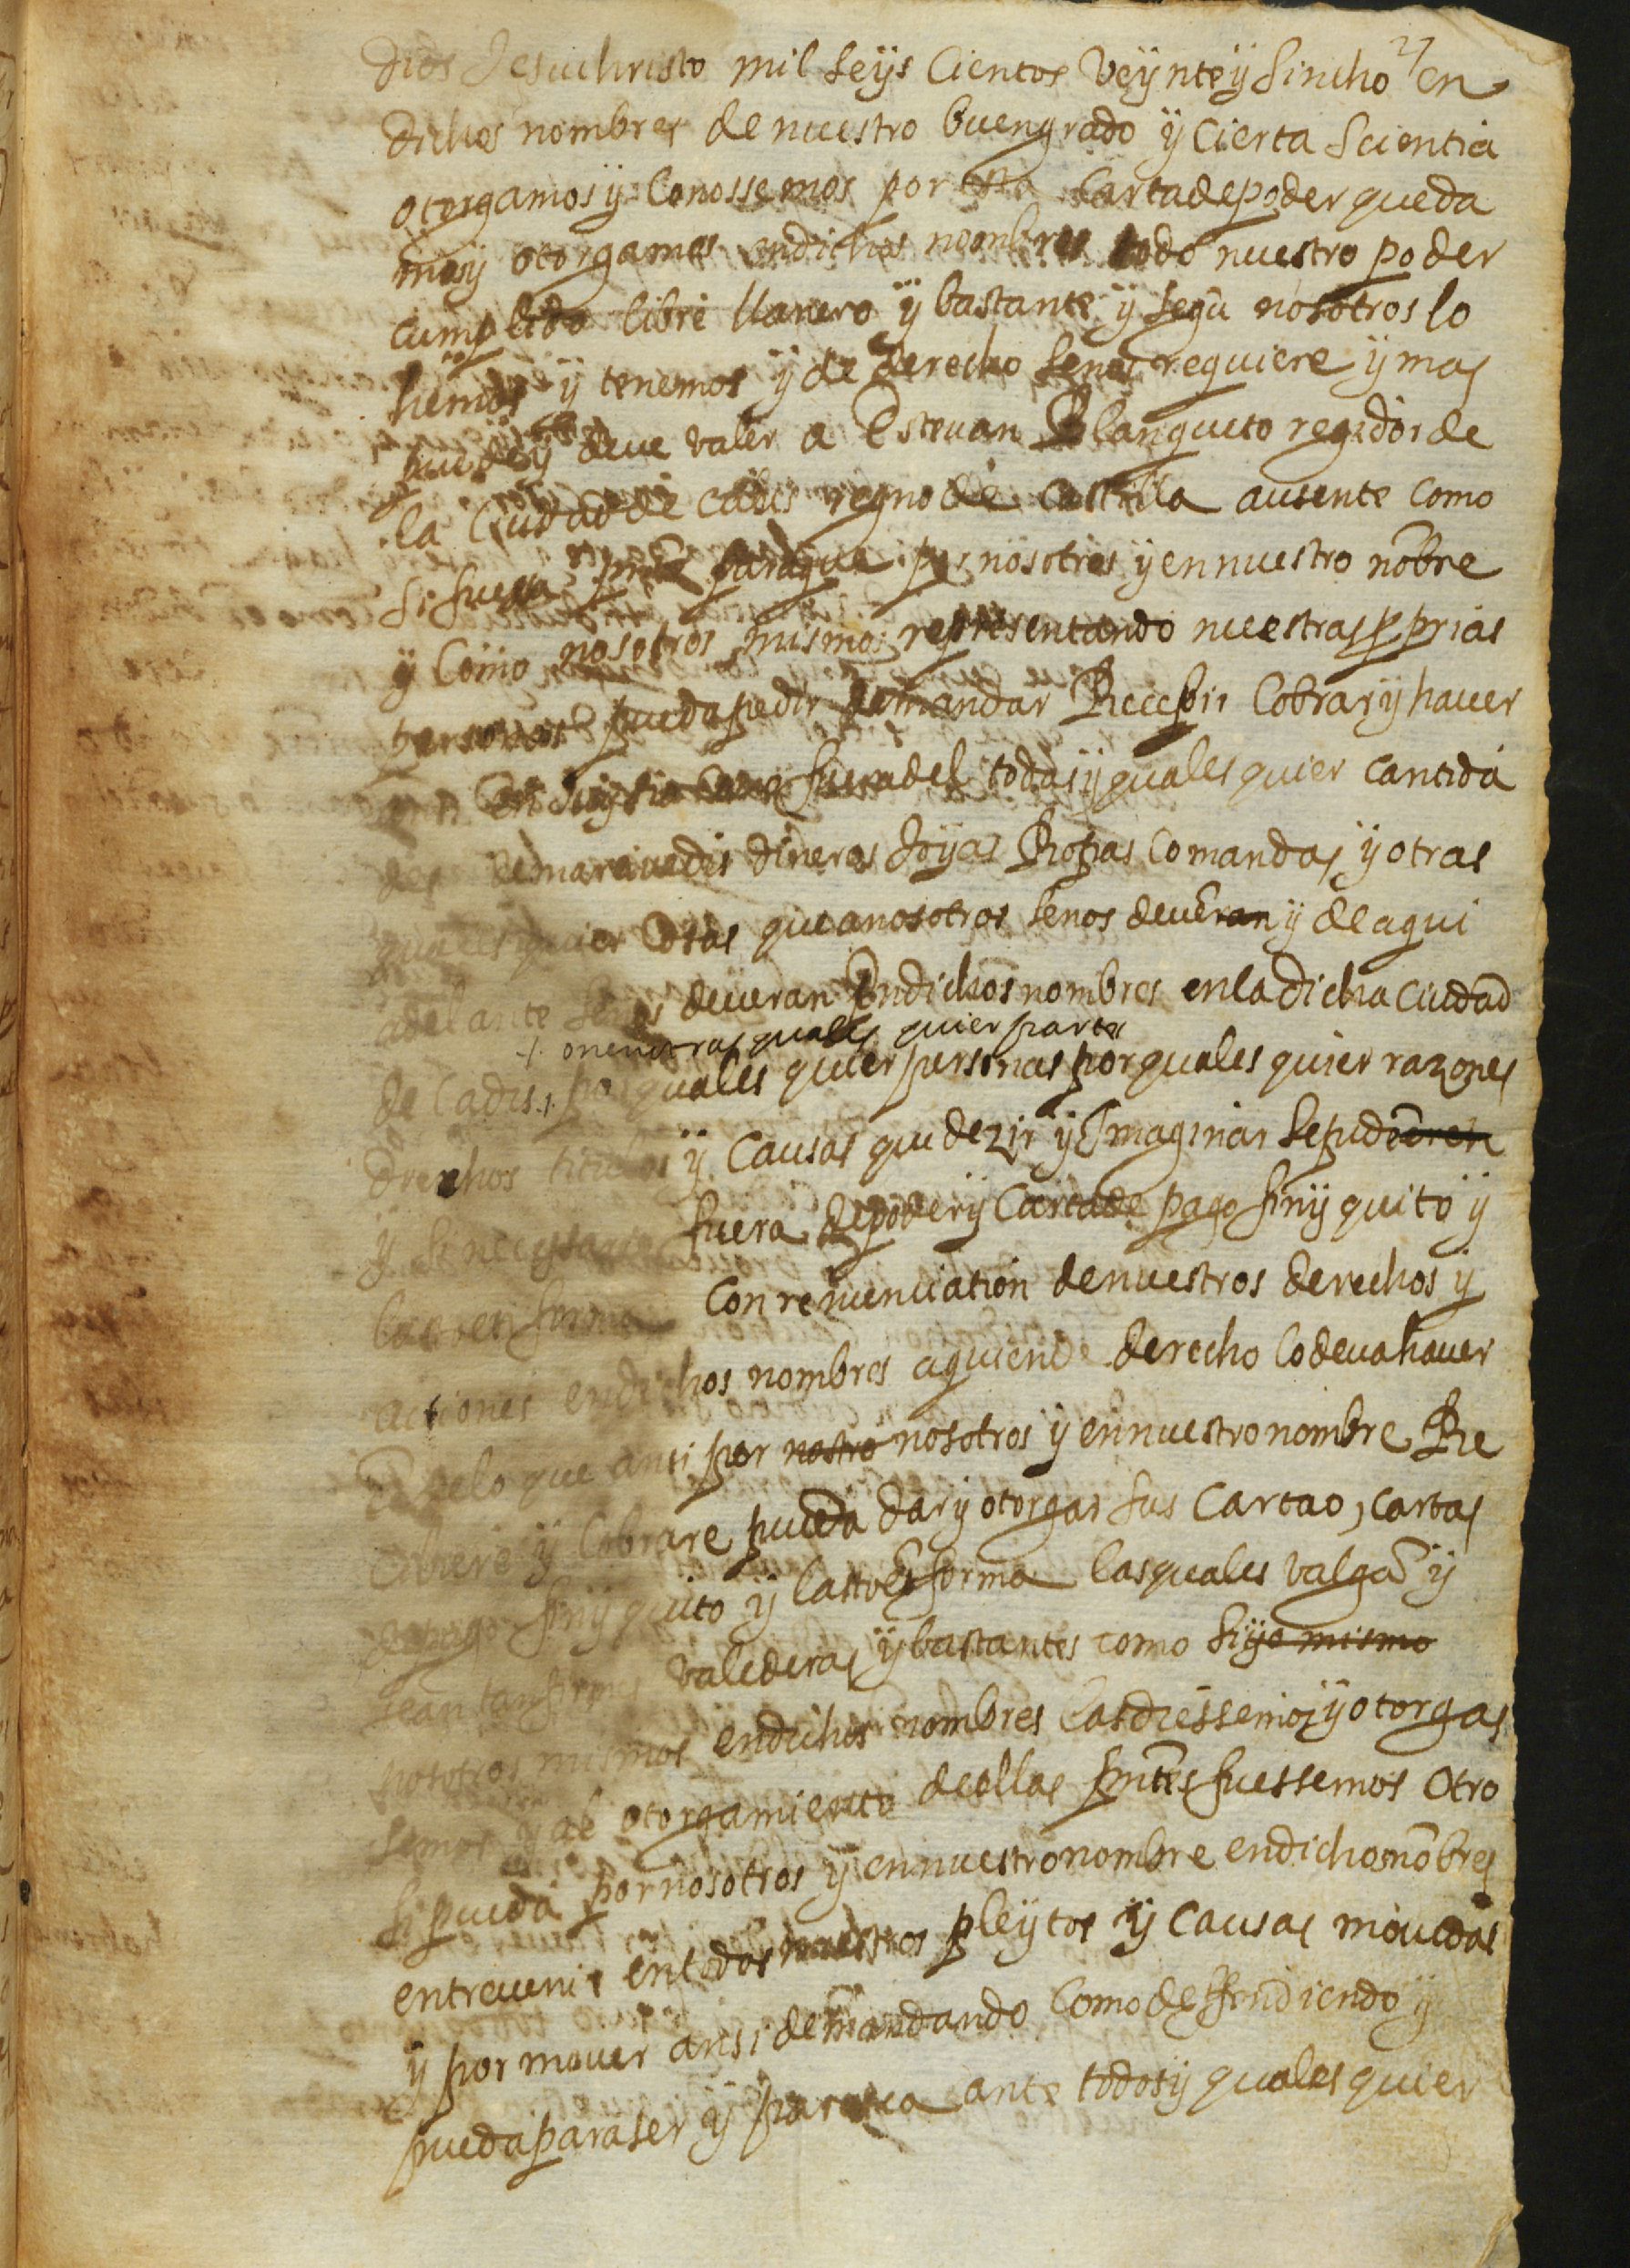 dios Jesuchristo mil seys cientos veynte y sincho en
dichos nombres de nuestro buen grado y cierta scientia
otorgamos y conossemos por esta carta de poder que da
mos y otorgamos en dichos nombres todo nuestro poder
cumplido libre llanero y bastante y segū nosotros lo
hemos y tenemos y de derecho se nos requiere y mas
puede y deve valer a Estevan Blanqueto regidor de
la Ciudad de Cadis regno de Castilla ausente como
si fuera para que por nosotros y en nuestro nōbre
y como nosotros mismos representando nuestras pprias
personas pueda pedir demandar Recebir cobrar y haver
en Juysio como fuera del todas y quales quier cantida
des de maravedis dineros Joyas Ropas comandas y otras
quales quier cosas que a nosotros se nos deveran y de aqui
adelante se nos deveran En dichos nombres en la dicha ciudad
./. o en otras quales quier partes
de Cadis ./. por quales quier personas por quales quier razones
drechos titulos y causas que dezir y Imaginar se pudieren
y si necessario fuera de poder y carta de pago finy quito y
lasto en forma con renunciation de nuestros derechos y
actiones en dichos nombres a quien de derecho lo deva haver
E de lo que ansi por nostro nosotros y en nuestro nombre Re
cibiere y cobrare pueda dar y otorgar sus carta o, cartas
de pago finy quito y lasto En forma las quales valgā y
sean tan firmes valederas y bastantes como si yo mismo
nosotros mismos en dichos nombres las diessemos y otorgas
semos y al otorgamiento de ellas pntēs fuessemos Otro
si pueda por nosotros y en nuestro nombre en dichos nōbres
entrevenir en todos nuestros pleytos y causas movidas
y por mover ansi demandando como deffendiendo y
pueda paraser y paresca ante todos y quales quier